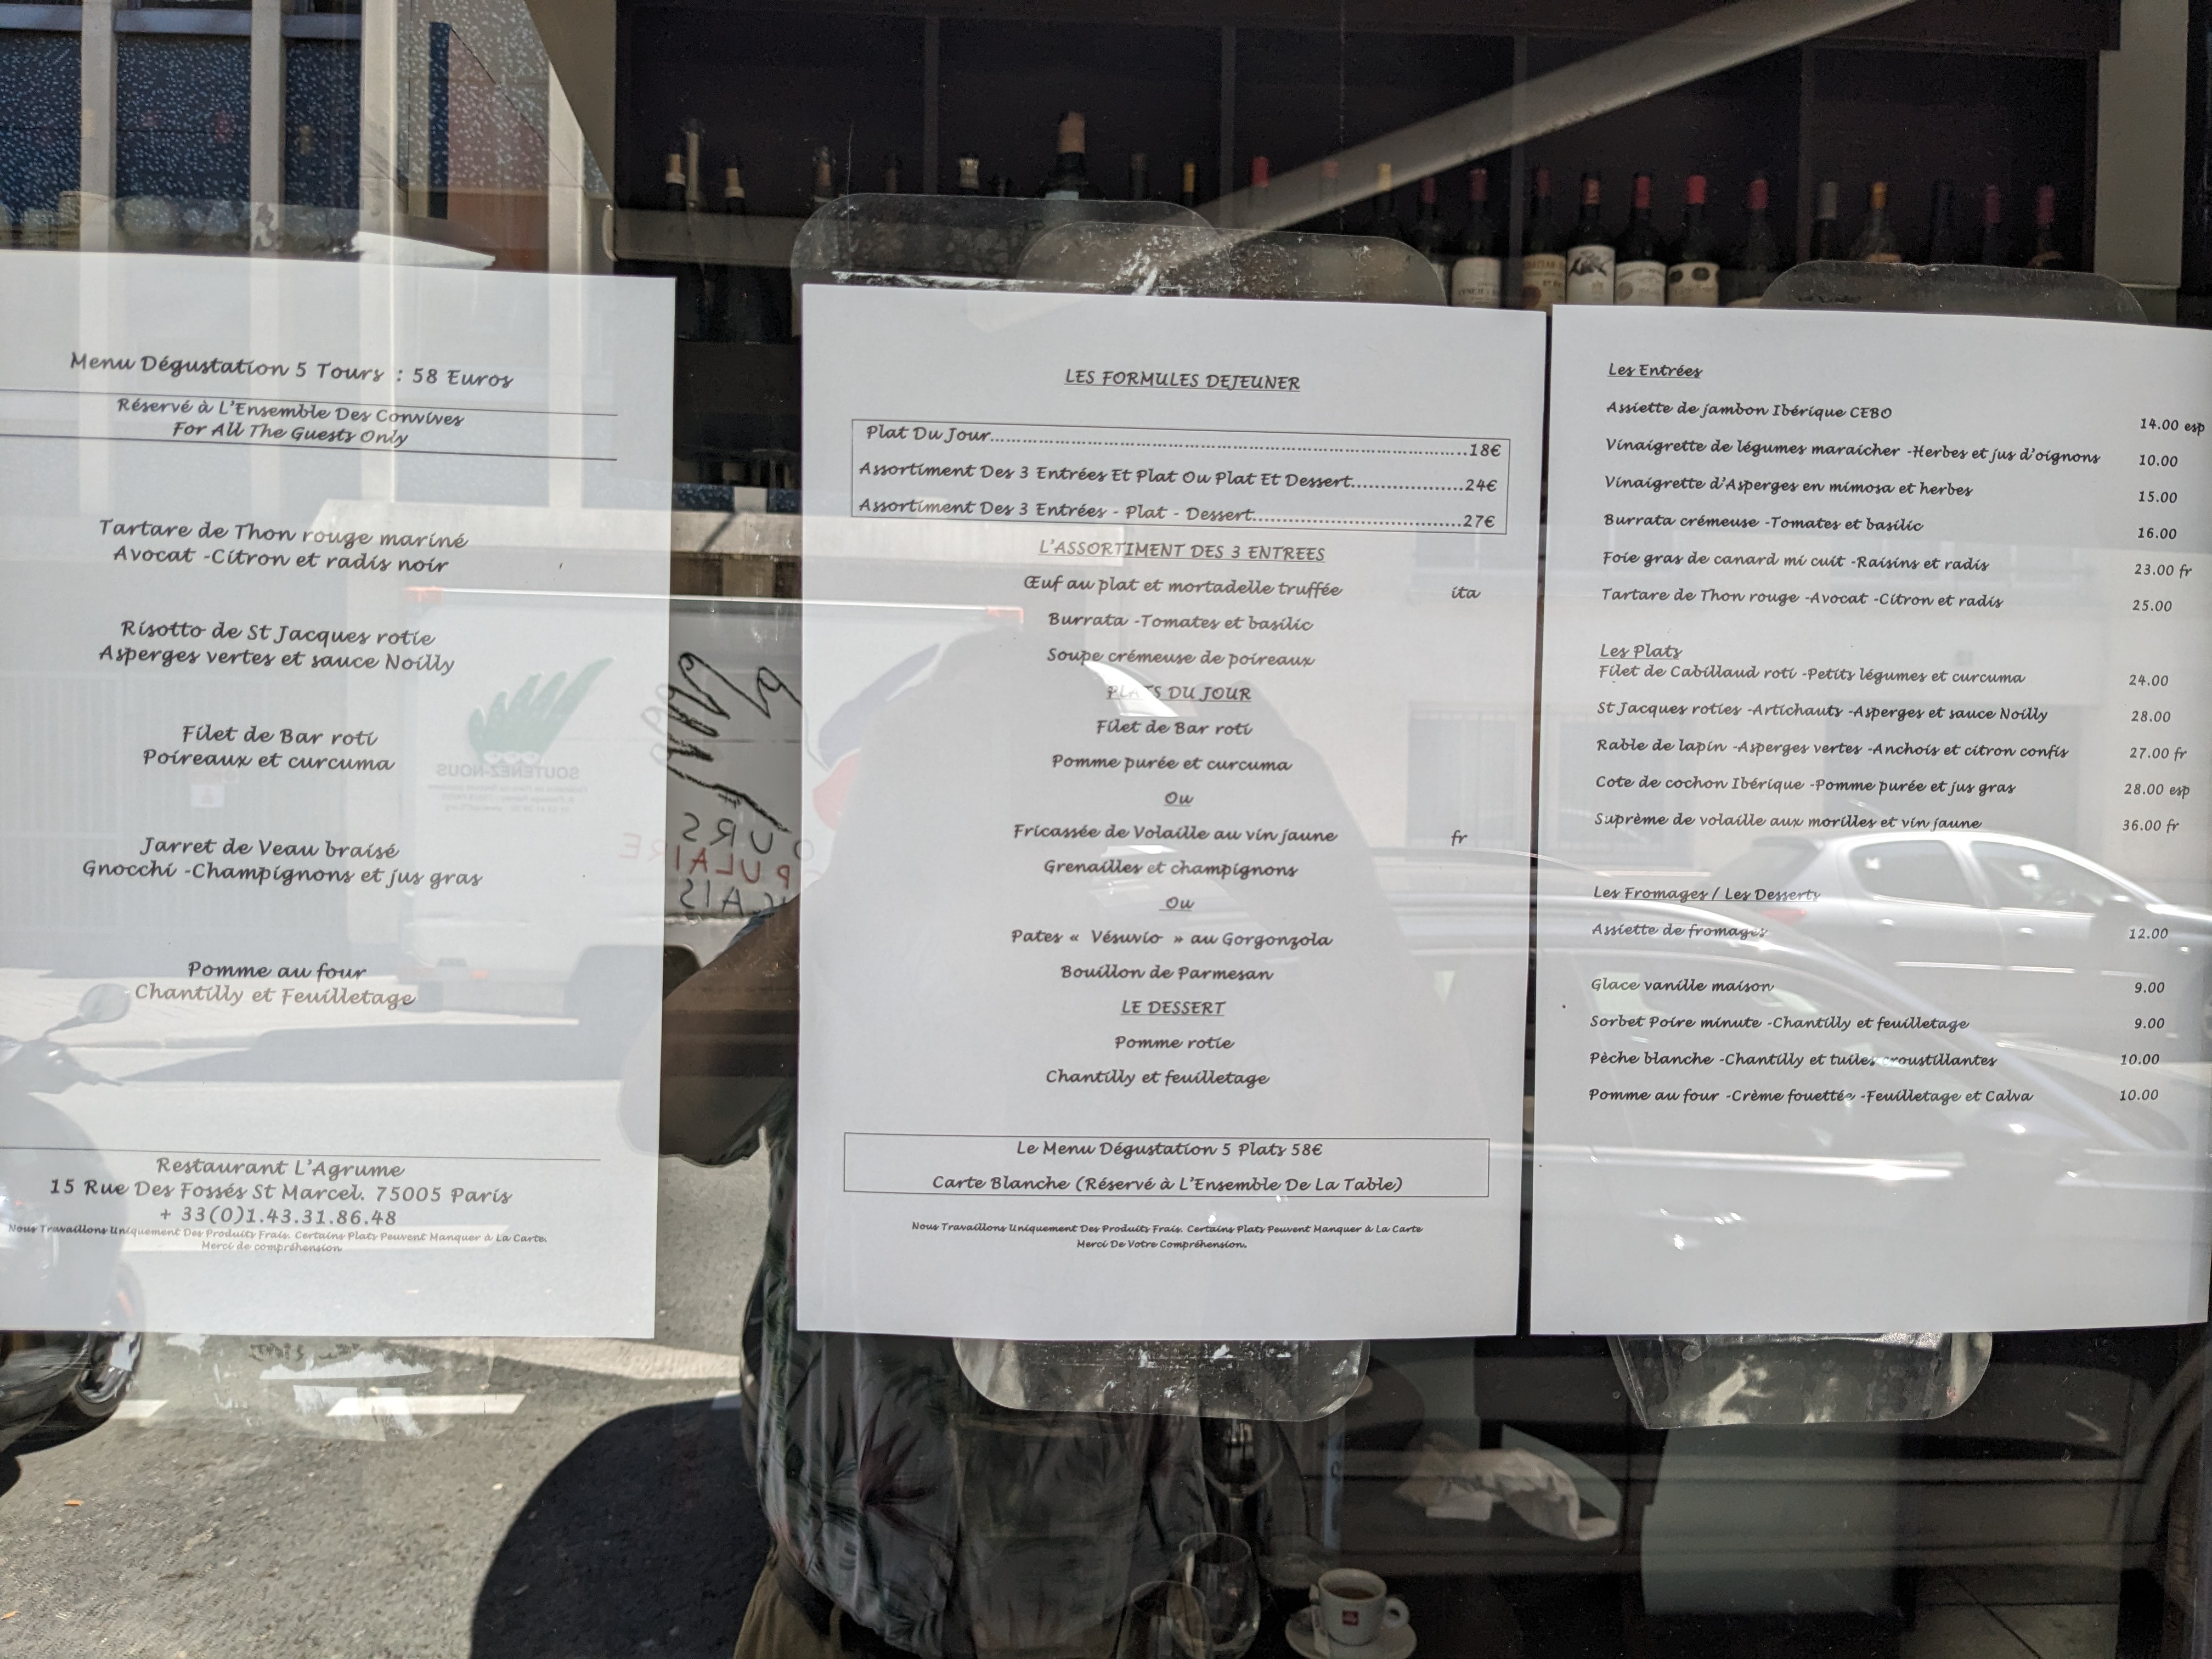 Menu Dégustation 5 Tours : 58 Euros
Réservé à L'Ensemble Des Convives
For All The Guests Only
Tartare de Thon rouge mariné
Avocat -Citron et radis noir
Risotto de St Jacques rotie
Asperges vertes et sauce Noilly
Filet de Bar roti
Poireaux et curcuma
Jarret de Veau braisé
Gnocchi -Champignons et jus gras
Pomme au four
Chantilly et Feuilletage
Restaurant L'Agrume
15 Rue Des Fossés St Marcel. 75005 Paris
+ 33(0)1.43.31.86.48
Nous Travaillons Uniquement Des Produits Frais. Certains Plats Peuvent Manquer à La Carte.
Merci de compréhension
LES FORMULES DEJEUNER
Plat Du Jour.....18€
Assortiment Des 3 Entrées Et Plat Ou Plat Et Dessert.....24€
Assortiment Des 3 Entrées - Plat - Dessert.....27€
L'ASSORTIMENT DES 3 ENTREES
Œuf au plat et mortadelle truffée ita
Burrata -Tomates et basilic
Soupe crémeuse de poireaux
PLATS DU JOUR
Filet de Bar roti
Pomme purée et curcuma
Ou
Fricassée de Volaille au vin jaune fr
Grenailles et champignons
Ou
Pates « Vésuvio » au Gorgonzola
Bouillon de Parmesan
LE DESSERT
Pomme rotie
Chantilly et feuilletage
Le Menu Dégustation 5 Plats 58€
Carte Blanche (Réservé à L'Ensemble De La Table)
Nous Travaillons Uniquement Des Produits Frais. Certains Plats Peuvent Manquer à La Carte
Merci De Votre Compréhension.
Les Entrées
Assiette de jambon Ibérique CEBO 14.00 esp
Vinaigrette de légumes maraicher -Herbes et jus d'oignons 10.00
Vinaigrette d'Asperges en mimosa et herbes 15.00
Burrata crémeuse -Tomates et basilic 16.00
Foie gras de canard mi cuit -Raisins et radis 23.00 fr
Tartare de Thon rouge -Avocat -Citron et radis 25.00
Les Plats
Filet de Cabillaud roti -Petits légumes et curcuma 24.00
St Jacques roties -Artichauts -Asperges et sauce Noilly 28.00
Rable de lapin -Asperges vertes -Anchois et citron confis 27.00 fr
Cote de cochon Ibérique -Pomme purée et jus gras 28.00 esp
Suprème de volaille aux morilles et vin jaune 36.00 fr
Les Fromages / Les Desserts
Assiette de fromages 12.00
Glace vanille maison 9.00
Sorbet Poire minute -Chantilly et feuilletage 9.00
Pèche blanche -Chantilly et tuiles croustillantes 10.00
Pomme au four -Crème fouettée -Feuilletage et Calva 10.00
SOUTENEZ-NOUS